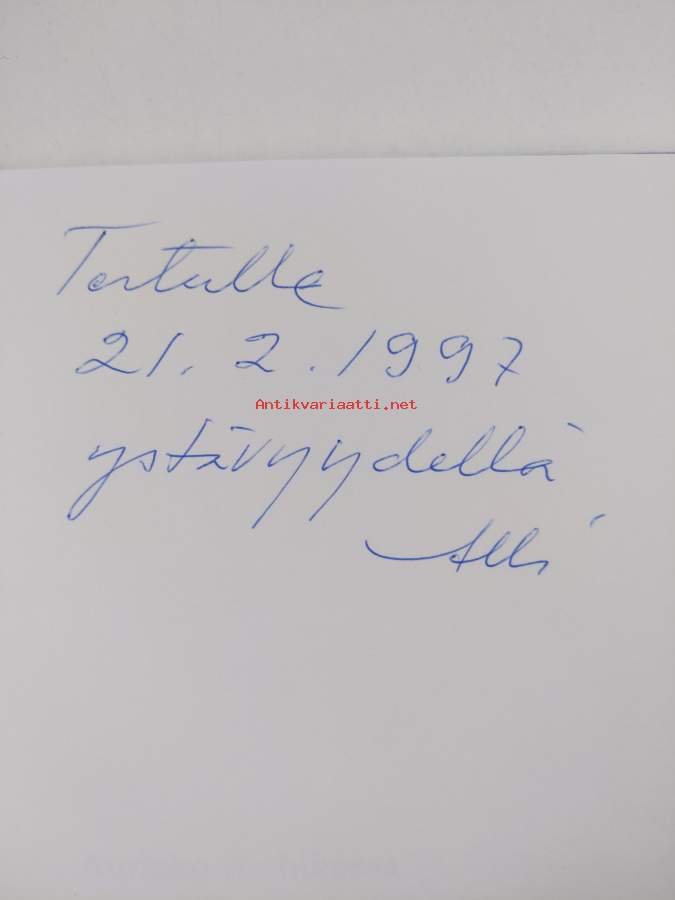 Tertulle
21.2.1997
Antikvariaatti.net
ystävyydellä
Alli